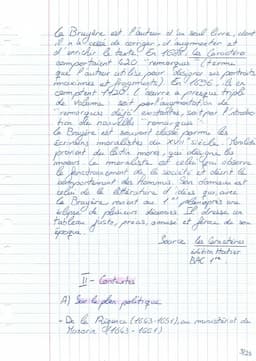 La Bruyère est l'auteur d'un seul livre, dont
il n'a cessé de corriger, d'augmenter et
d'enrichir le texte. En 1688, les Caractères
comportaient 420 "remarques" (terme
que l'auteur utilise pour désigner ses portraits
maximes et fragments). En 1696, ils en
comptent 1120. L'œuvre a presque triplé
de volume : soit par augmentation de
"remarques" déjà existantes, soit par l'introduc-
tion de nouvelles "remarques".
La Bruyère est souvent classé parmi les
écrivains moralistes du XVIIe siècle.
provient du latin mores, qui désigne les
mœurs. Le moraliste est celui qui observe
le fonctionnement de la société et décrit le
comportement des hommes. Son domaine est
celui de la littérature d'idées que avec
La Bruyère naît au 1er plan après une
éclipse de plusieurs décennies. Il dresse un
tableau juste, précis, amusé et féroce de son
époque.
Source : Les Caractères
Hatier
BAC 1re
II - Contextes
A) Sur le plan politique
- De la Régence (1643-1651), au ministériat de
Mazarin (1643-1661)